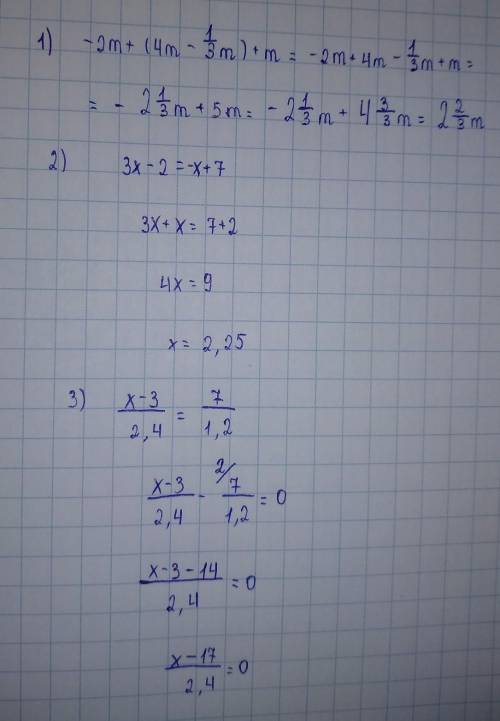 1) -2m + (4m - 1/3 m) + m = -2m + 4m - 1/3 m + m =
= - 2 1/3 m + 5m = - 2 1/3 m + 4 3/3 m = 2 2/3 m
2) 3x - 2 = -x + 7
3x + x = 7 + 2
4x = 9
x = 2,25
3) x-3/2,4 = 7/1,2
x-3/2,4 - 2/ 7/1,2 = 0
x-3-14/2,4 = 0
x-17/2,4 = 0